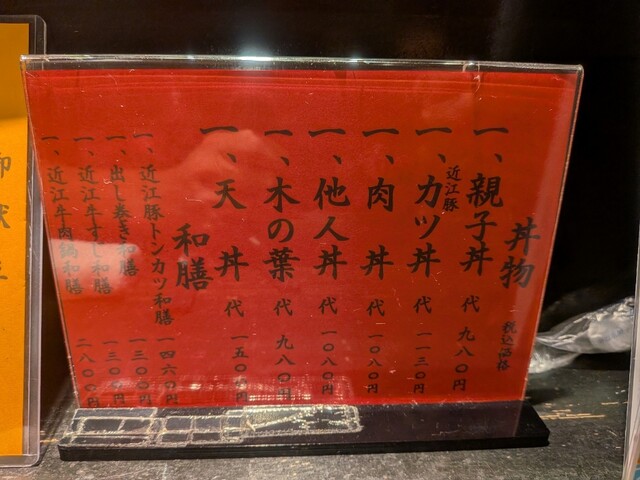 丼物 税込価格
一、親子丼 代 九八〇円
一、近江豚カツ丼 代 一一三〇円
一、肉丼 代 一〇八〇円
一、他人丼 代 一〇八〇円
一、木の葉 代 九八〇円
一、天丼 代 一五〇〇円
和膳
一、近江豚トンカツ和膳 一四六〇円
一、出し巻き和膳 一三〇〇円
一、近江牛すじ和膳 一三〇〇円
一、近江牛肉鍋和膳 二八〇〇円